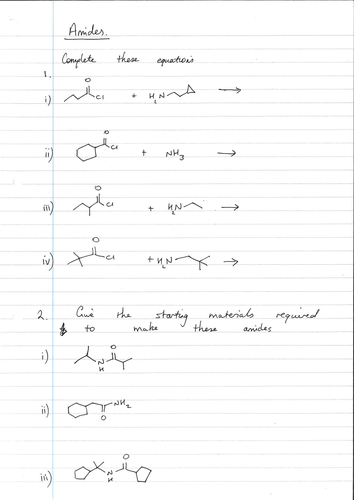 Amides.
Complete these equations
1.
i) O Cl + H2N →
ii) O Cl + NH3 →
iii) O Cl + H2N →
iv) O Cl + H2N →
2. Give the starting materials required
to make these amides
i) O N H
ii) NH2 O
iii) O N H